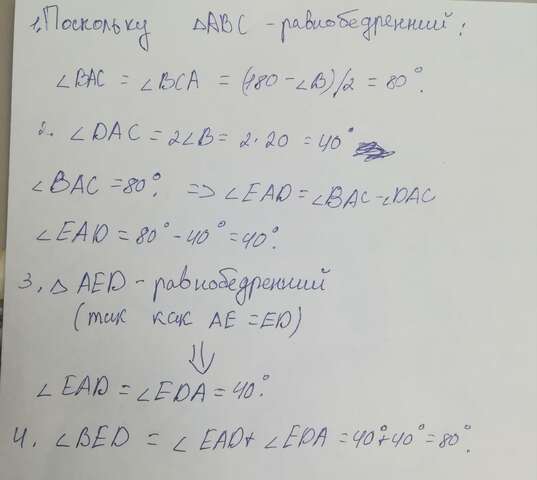 1. Поскольку △ABC - равнобедренний:
∠BAC = ∠BCA = (180 - ∠B)/2 = 80°.
2. ∠DAC = 2∠B = 2·20 = 40°
∠BAC = 80°. => ∠EAD = ∠BAC - ∠DAC
∠EAD = 80° - 40° = 40°.
3, △ AED - равнобедренний
(так как AE = ED)
⇓
∠EAD = ∠EDA = 40°.
4. ∠BED = ∠EAD + ∠EDA = 40° + 40° = 80°.